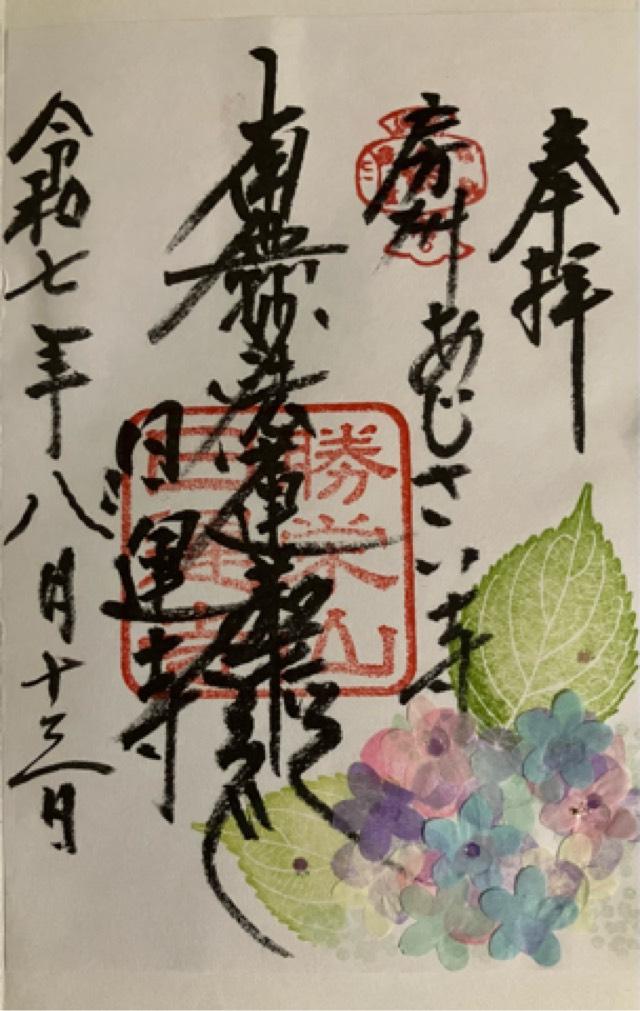 奉拝
房州
あじさい寺
南無妙法蓮華経
勝栄山
日運寺
日運寺
令和七年八月十三日